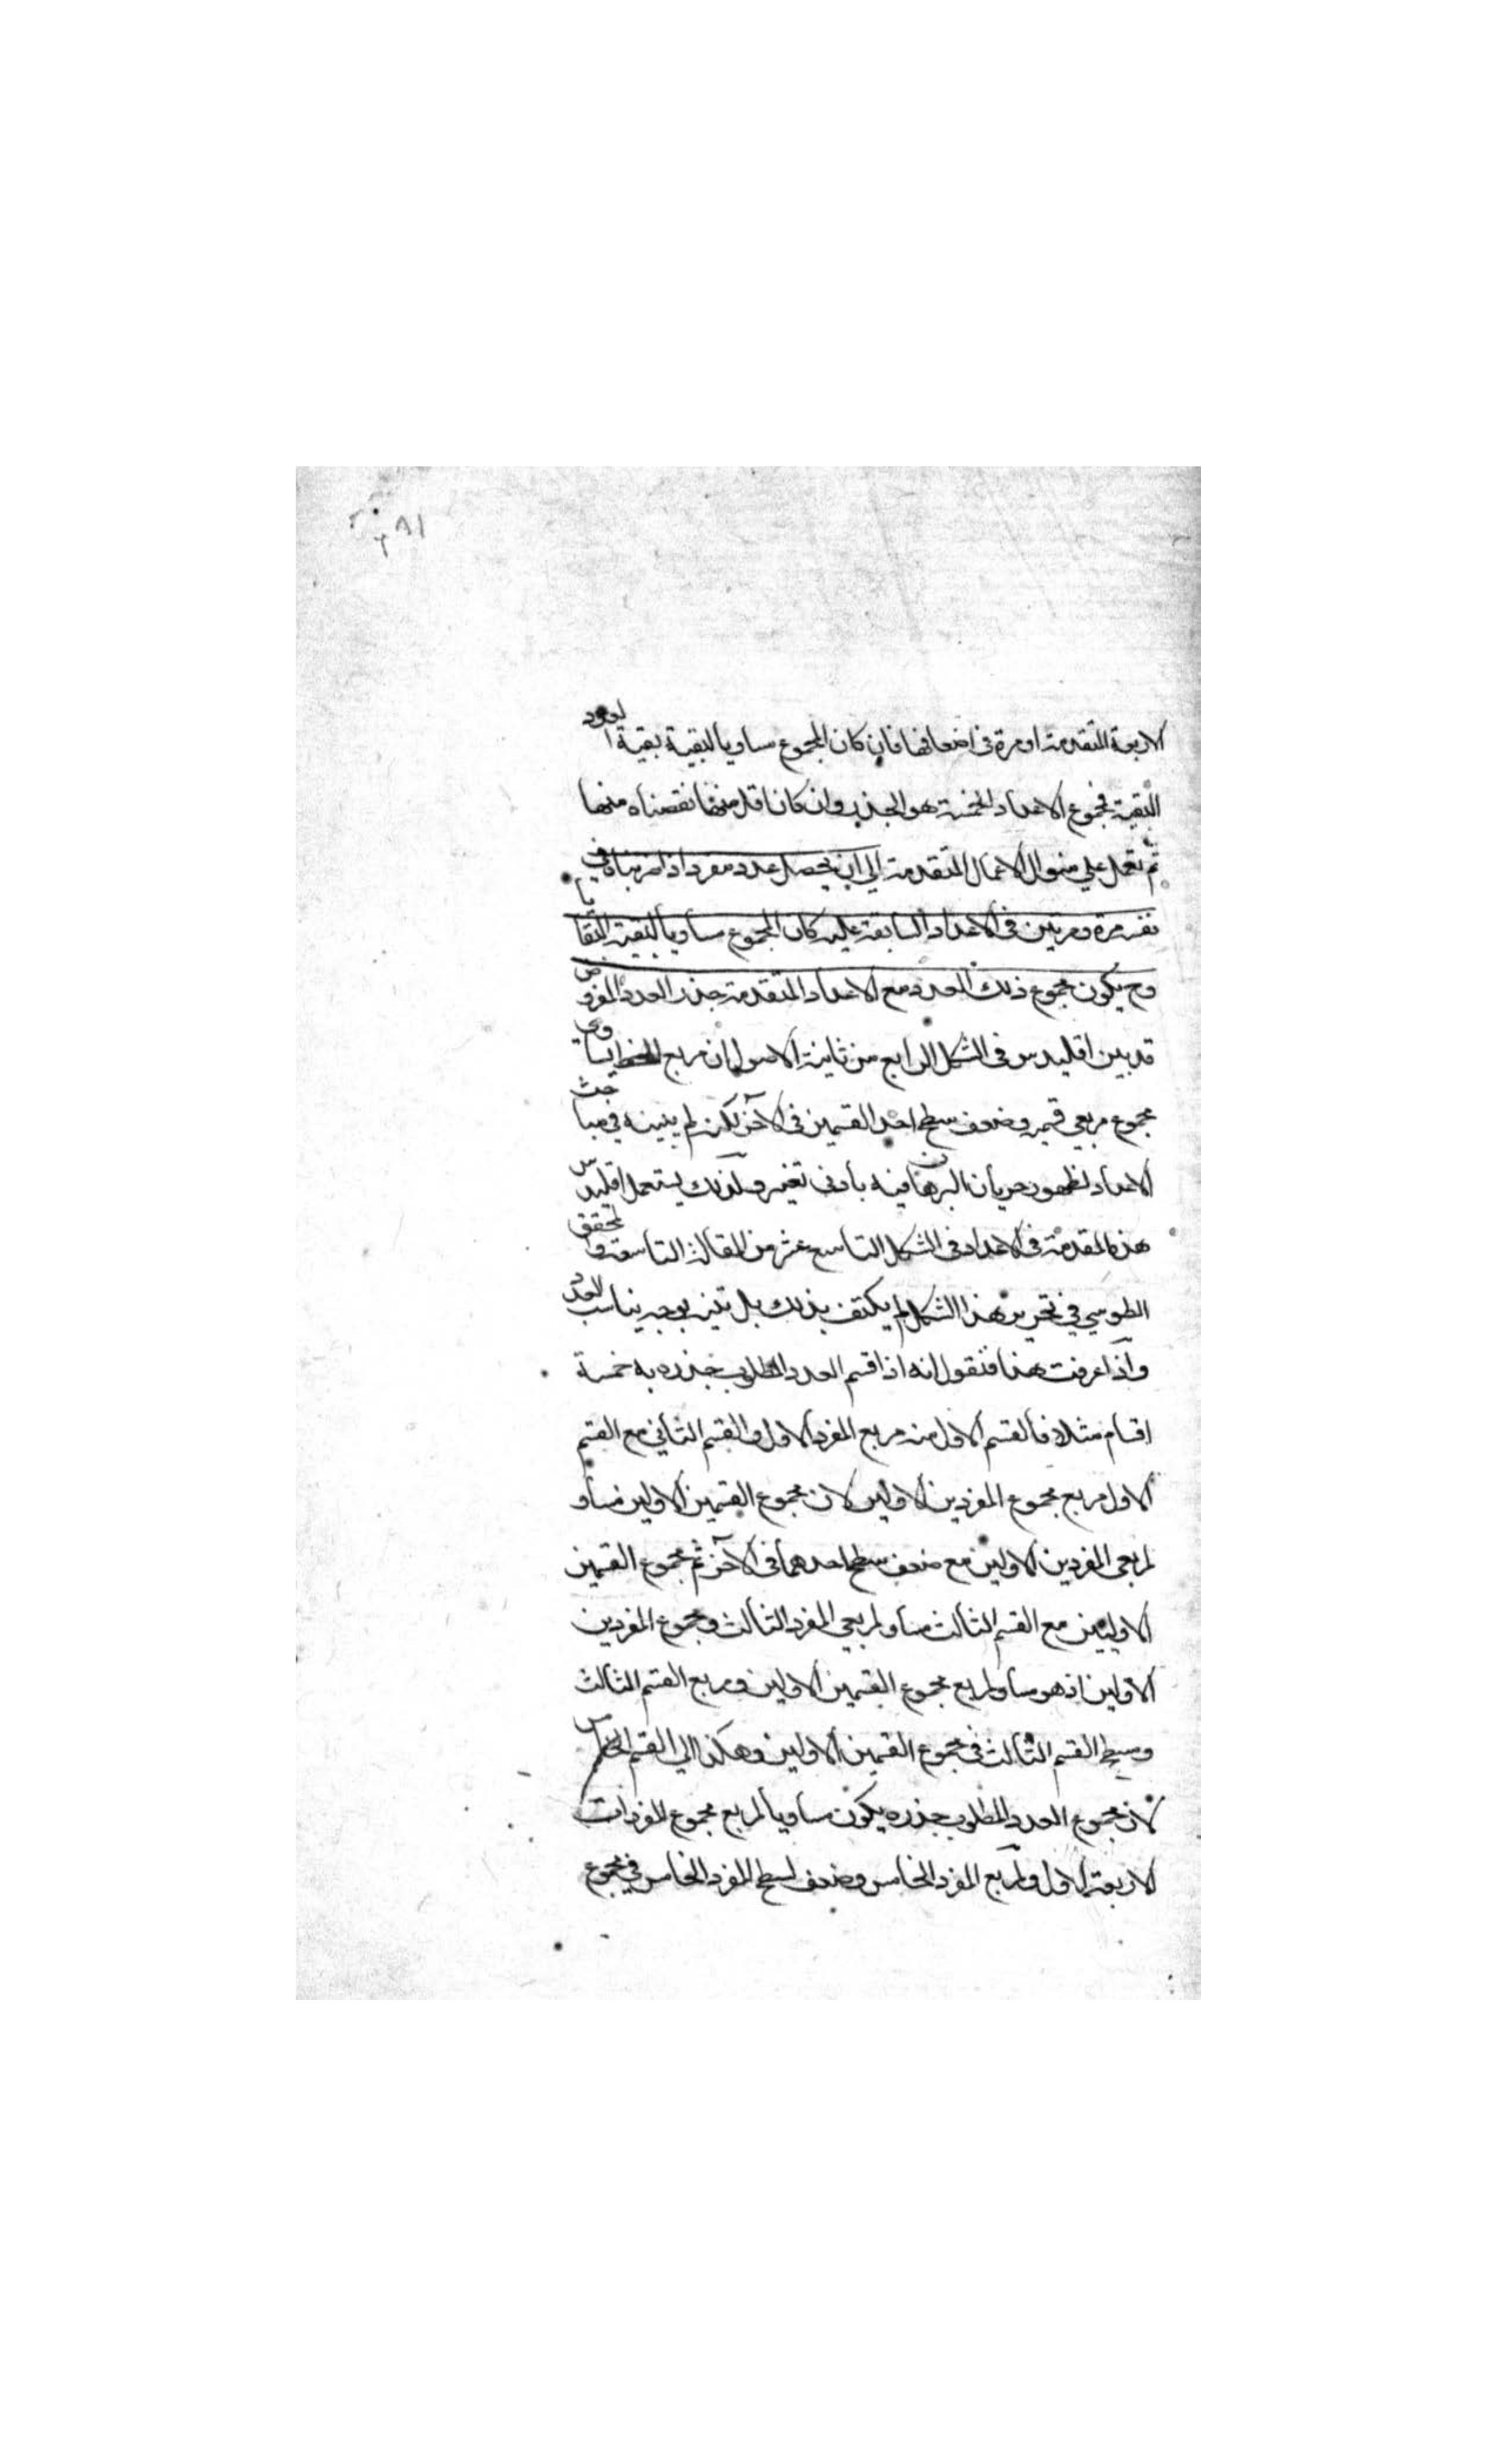 ٢٨١
الاربعة المتقدمة او مرة فى اضعافها فان كان المجموع مساويا لبقية بقية العدد
البقية فمجموع الاعداد الخمسة هو الجذر وان كان اقل منها نقصناه منها
ثم نعمل على منوال الاعمال المتقدمة الى ان يحصل عدد مفرد اذا ضربناه في
نفسه مرة ومرتين فى الاعداد السابقة عليه كان المجموع مساويا لبقية البقايا
وح يكون مجموع ذلك العدد مع الاعداد المتقدمة جذر العدد المفروض
قد بين اقليدس فى الشكل الرابع من ثانية الاصول ان مربع الخط يساوي
مجموع مربعي قسميه وضعف سطح احد القسمين فى الآخر لكن لم يبينه في مباحث
الاعداد لظهور جريان البرهان فيه بادنى تغيير ولذلك يستعمل اقليدس
هذه المقدمة فى الاعداد فى الشكل التاسع عشر من المقالة التاسعة والمحقق
الطوسي في تحرير هذا الشكل لم يكتف بذلك بل بوجه يناسب العدد
واذا عرفت هذا فنقول انه اذا قسم العدد المطلوب جذره به خمسة
اقسام مثلا فالقسم الاول منه مربع المفرد الاول والقسم الثاني مع القسم
الاول مربع مجموع المفردين الاولين لان مجموع القسمين الاولين مساو
لمربعي المفردين الاولين مع ضعف سطح احدهما فى الآخر ثم مجموع القسمين
الاوليين مع القسم الثالث مساو لمربعي المفرد الثالث ومجموع المفردين
الاولين اذ هو مساو لمربع مجموع القسمين الاولين ومربع القسم الثالث
وسطح القسم الثالث فى مجموع القسمين الاولين وهكذا الى القسم الخامس
لان مجموع العدد المطلوب جذره يكون مساويا لمربع مجموع المفردات
الاربعة الاول ولمربع المفرد الخامس وضعف لسطح المفرد الخامس في مجموع